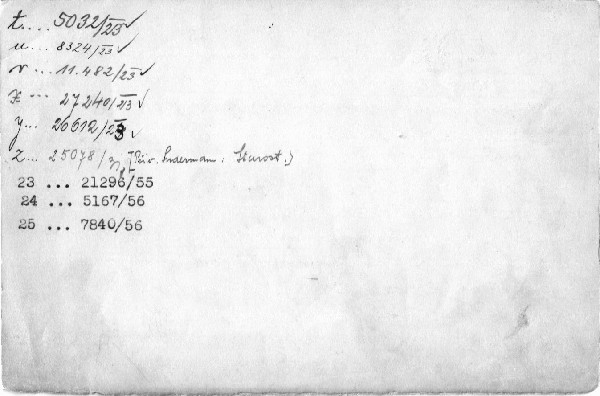 t.... 5032/23 ✓
u... 8324/23 ✓
v... 11.482/23 ✓
x... 27240/23 ✓
y... 20612/23 ✓
z... 25078/
23 ... 21296/55
24 ... 5167/56
25 ... 7840/56